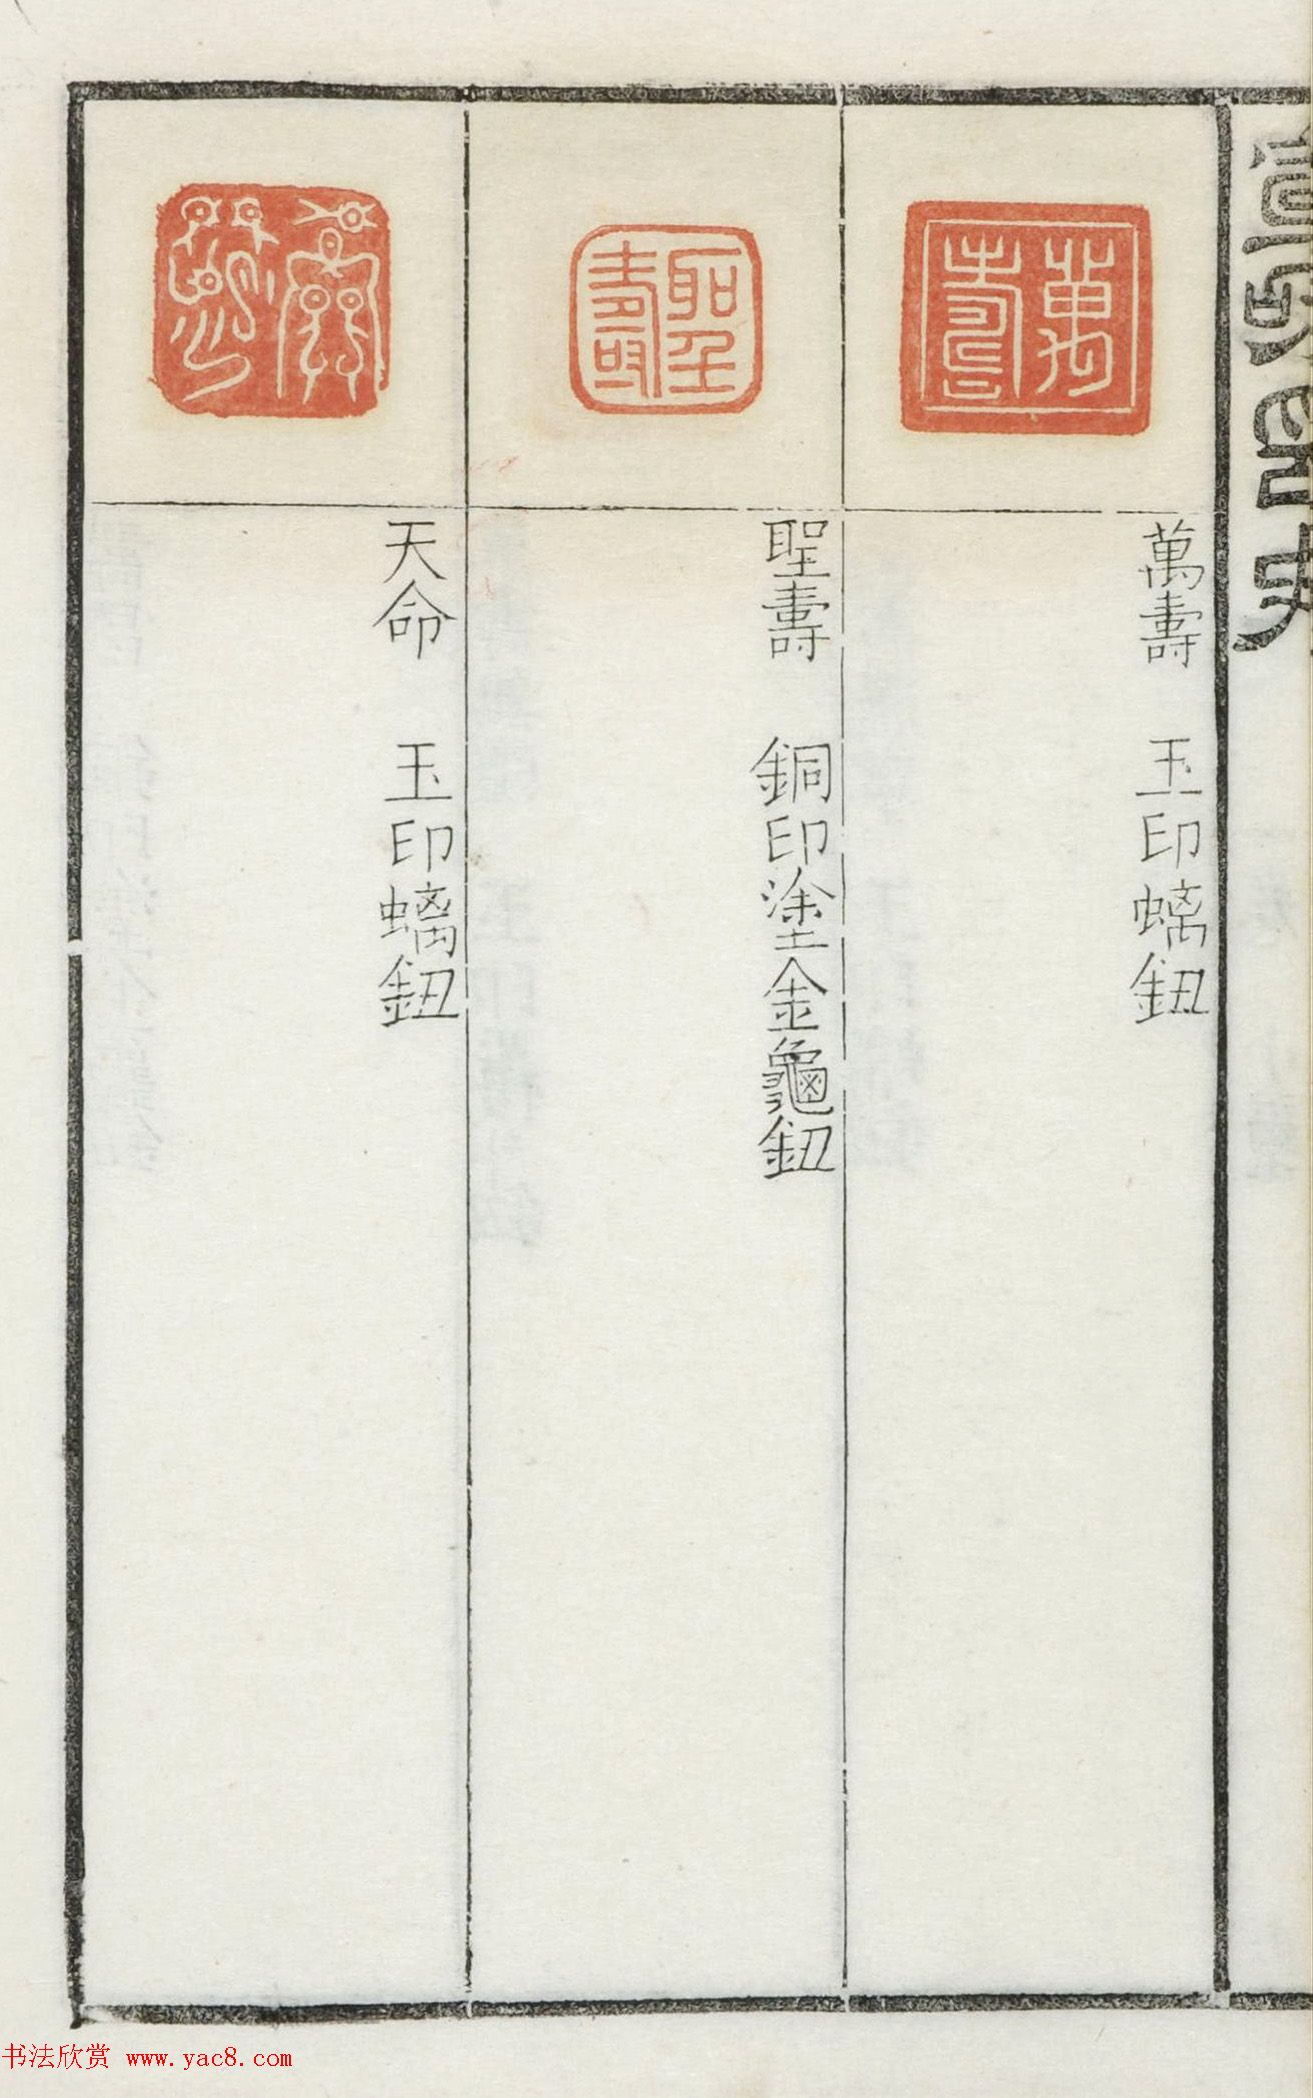 萬壽
萬壽　玉印螭鈕
聖壽
聖壽　銅印塗金龜鈕
天命　玉印螭鈕
书法欣赏 www.yac8.com